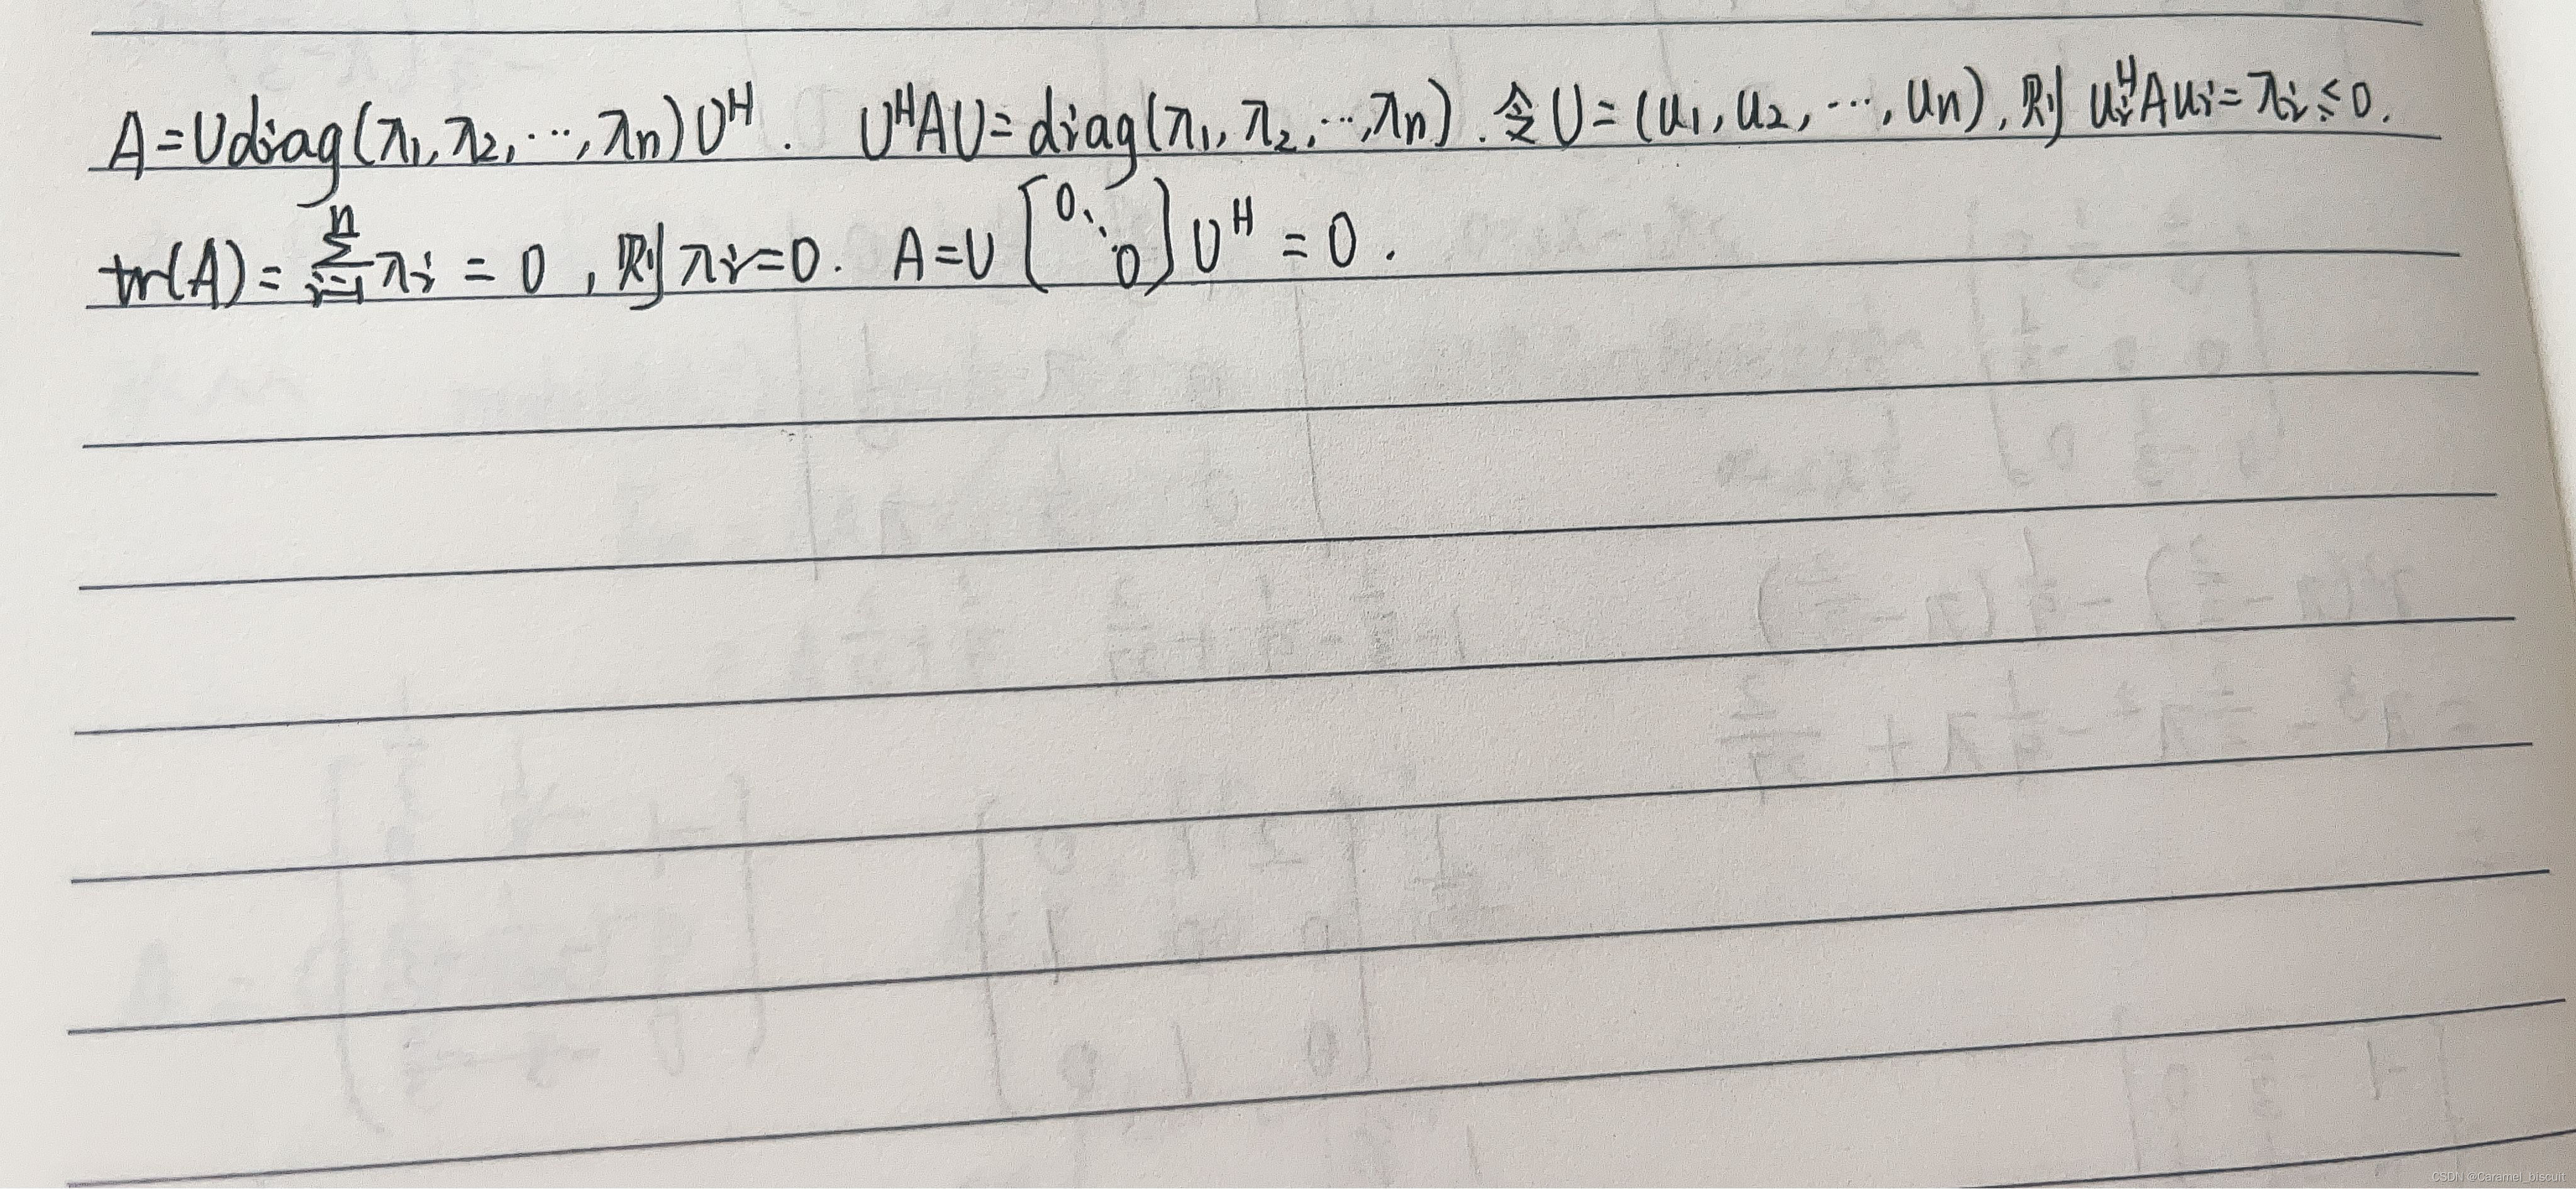 A=Udiag(λ₁,λ₂,⋯,λn)Uᴴ. UᴴAU=diag(λ₁,λ₂,⋯,λn).令U=(u₁,u₂,⋯,un),则uᵢᴴAuᵢ=λᵢ≤0.
tr(A)=∑ⁿᵢ₌₁λᵢ=0,则λᵢ=0. A=U[0⋱0]Uᴴ=0.
CSDN @Caramel_biscuit